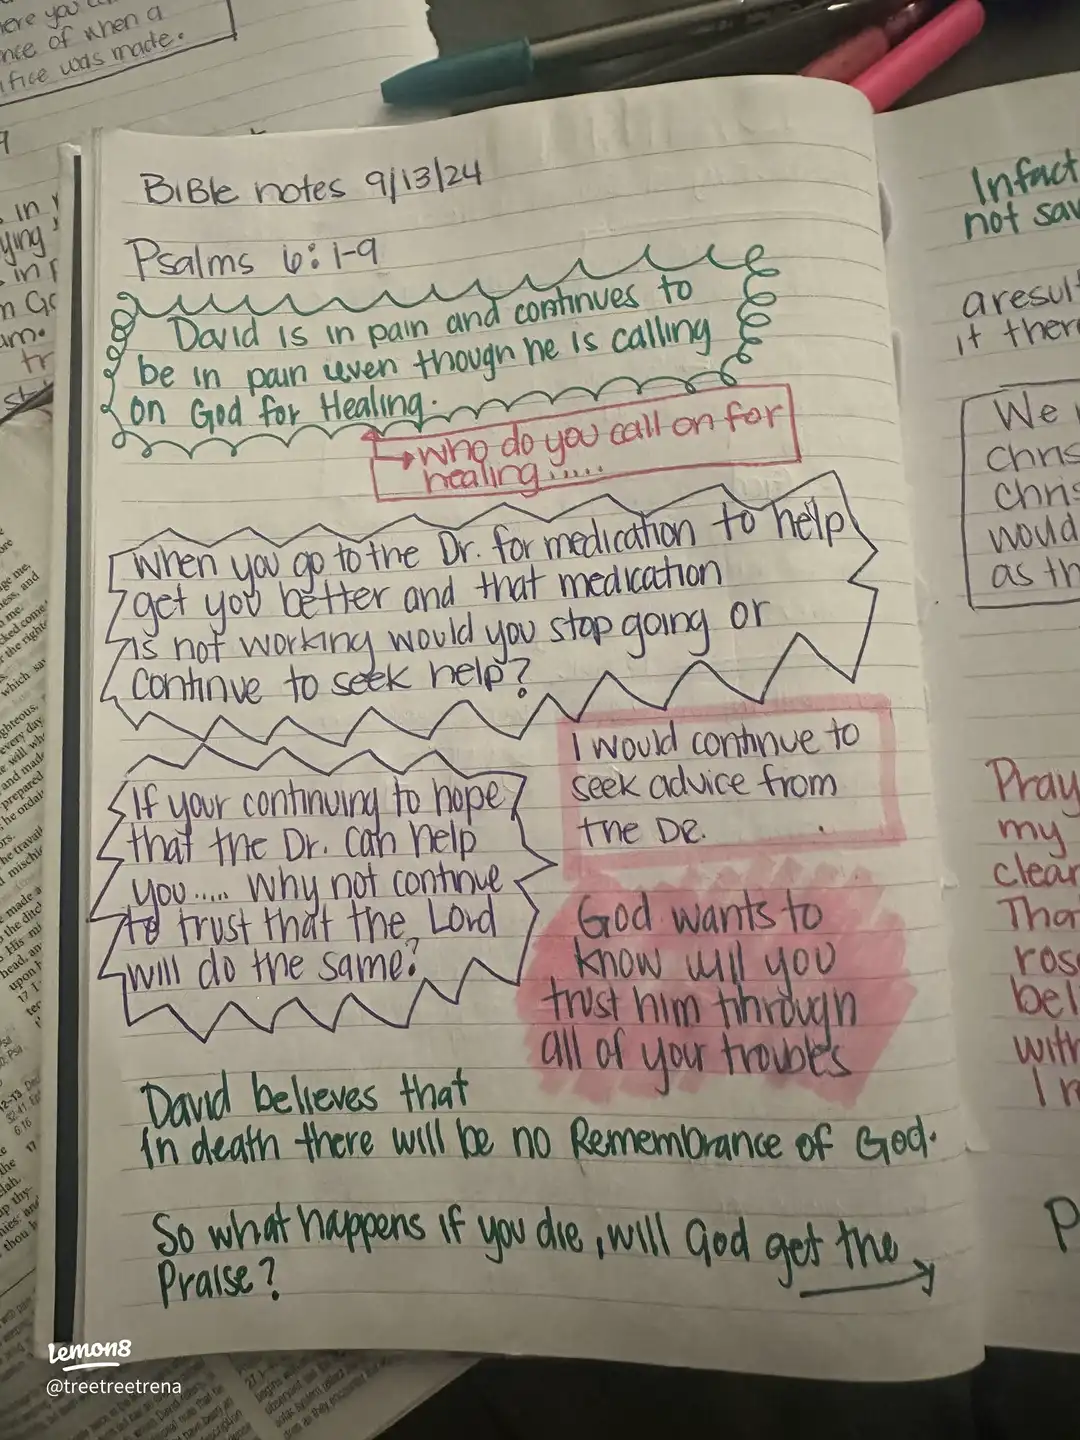 ere you
nce of when a
ifice was made.
BiBle notes 9/13/24
Psalms 6:1-9
David is in pain and continues to
be in pain even though he is calling
on God for Healing.
who do you call on for
healing.....
When you go to the Dr. for medication to help
get you better and that medication
is not working would you stop going or
continue to seek help?
I would continue to
seek advice from
the DR.
If your continuing to hope
that the Dr. can help
you..... Why not continue
to trust that the Lord
will do the same?
God wants to
know will you
trust him through
all of your troubles
David believes that
in death there will be no Remembrance of God.
So what happens if you die, will God get the
Praise?
Infact
not sav
aresult
it ther
We
Chris
Chris
would
as th
Pray
my
clear
Tha
ros
bel
with
I
P
Lemon8
@treetreetrena